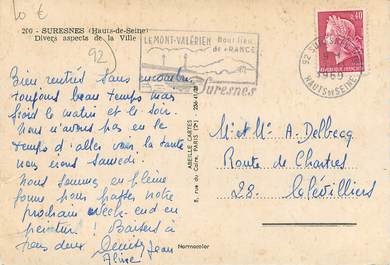 10 €
200 - SURESNES (Hauts-de-Seine)
Divers aspects de la Ville
92
Bien rentrés sans encombre.
toujours beau temps mais
frois le matin et le soir.
Nous n'avons pas eu le
temps d'aller voir la tante
nous irons Samedi.
Nous sommes en pleine
forme pour passer notre
prochain week-end en
peinture! Baisers à
tous deux Denise Jean
Aline
ABEILLE-CARTES
8, rue du Caire, PARIS (2e)
Normacolor
LE MONT-VALÉRIEN Haut lieu
de FRANCE
Suresnes
92 SURESNES
1969
HAUTS DE SEINE
0,40
M. et Me A. Delbecq
Route de Chartres
28. Colévilliers